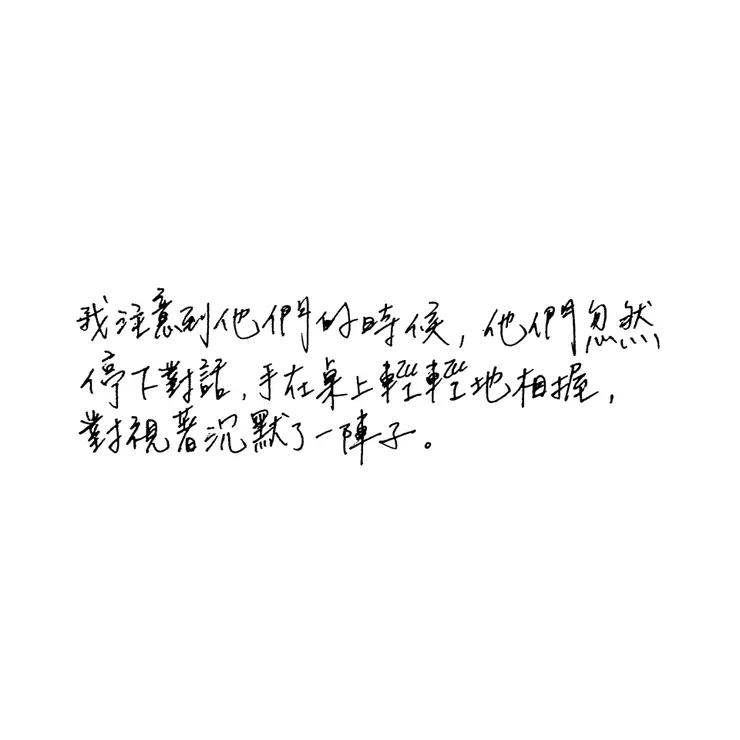 我注意到他們的時候，他們忽然
停下對話，手在桌上輕輕地相握，
對視著沉默了一陣子。